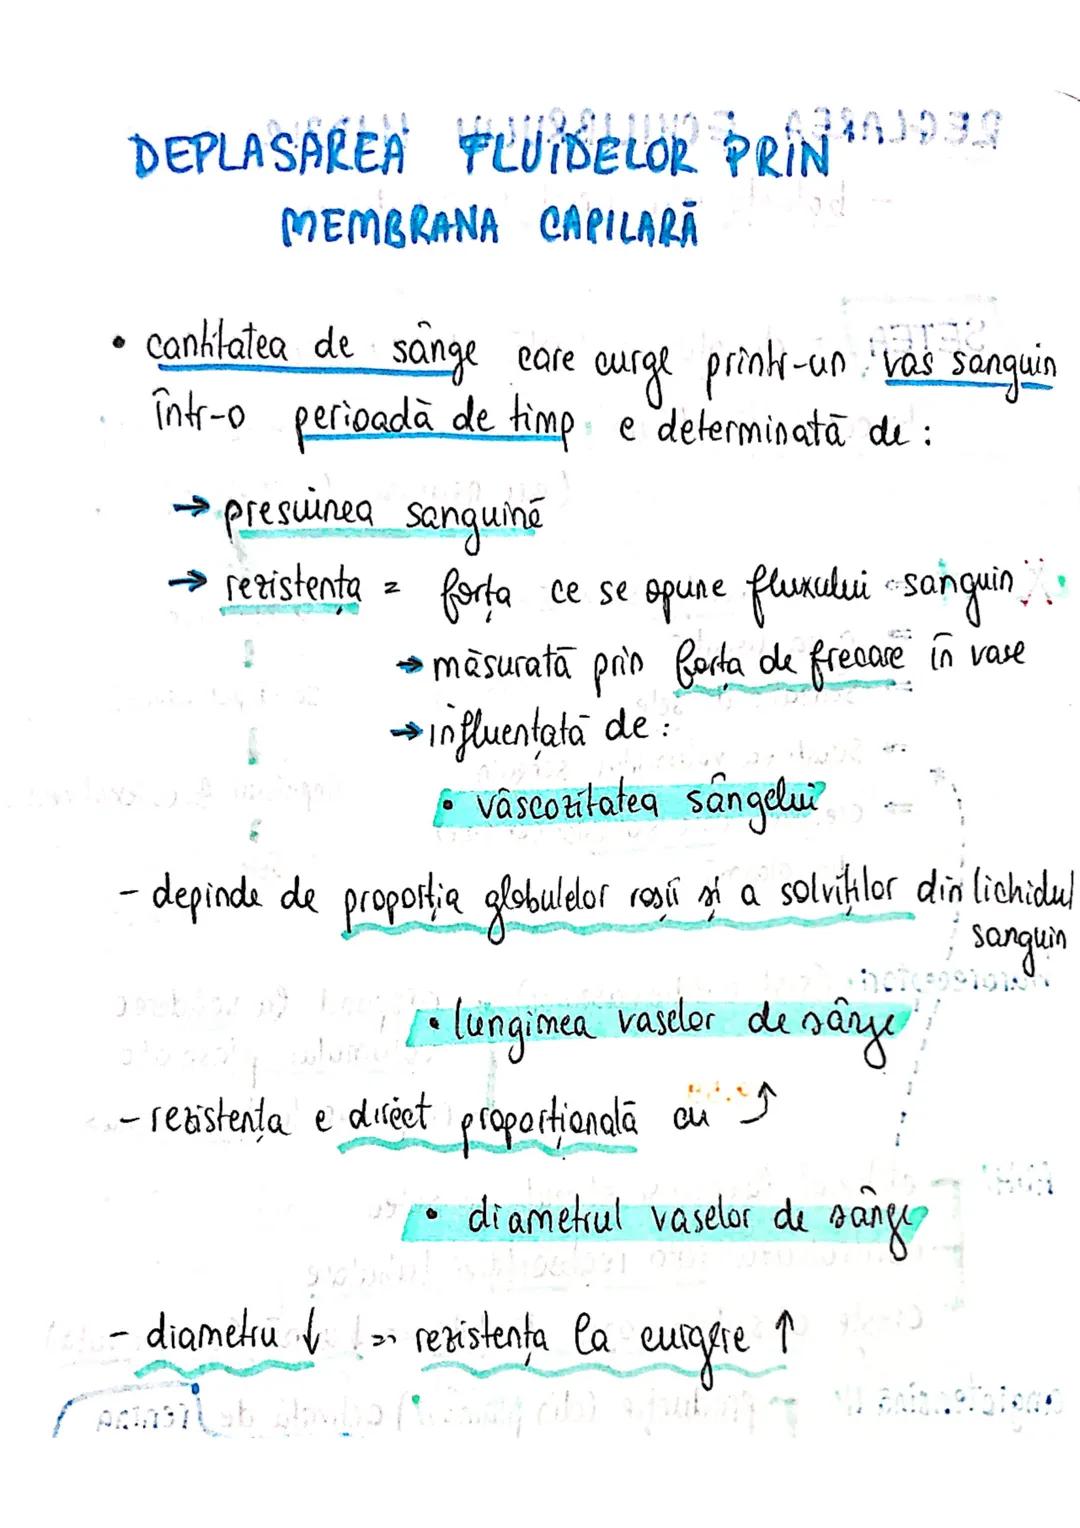 DEPLASAREA FLUIDELOR PRIN
MEMBRANA CAPILARĂ
• cantitatea de sânge care curge printr-un vas sanguin
într-o perioadă de timp e determinată de :
→ presuinea sanguină
→ rezistența = forța ce se opune fluxului sanguin
→ măsurată prin forța de frecare în vase
→ influențată de :
• vâscozitatea sângelui
- depinde de proporția globulelor roșii și a solviților din lichidul
sanguin
• lungimea vaselor de sânge
- rezistența e direct proporțională cu ↑
• diametrul vaselor de sânge
- diametru ↓ => rezistența la curgere ↑